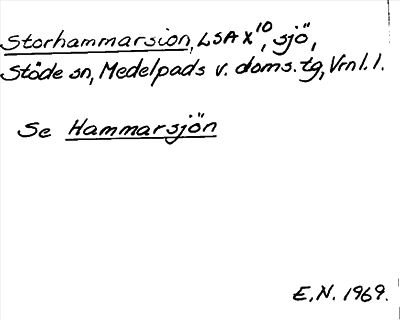 Storhammarsion, LSA X¹⁰, sjö,
Stöde sn, Medelpads v. doms. tg, Vrnl. l.
Se Hammarsjön
E.N. 1969.